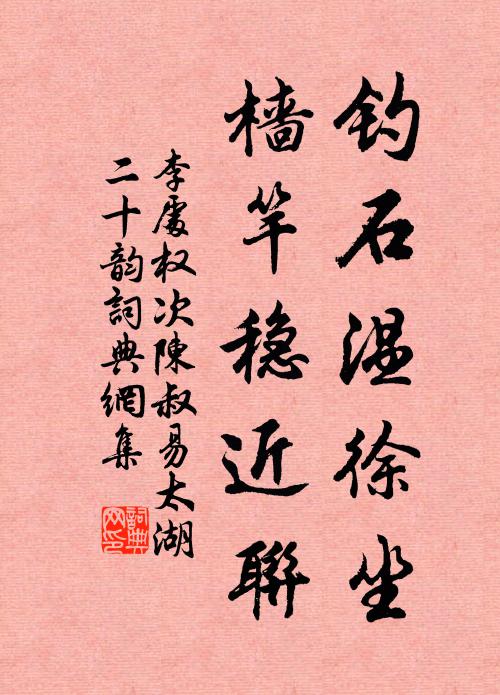 钓石温徐坐
樯竿稳近联
李處权次陳叔易太湖
二十韵詞典網集
詞典
网印